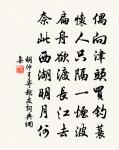 偶向津頭買釣蓑
懷人只隔一煙波
扁舟欲渡長江去
奈此西湖明月何
胡仲弓寄趙友詞典網
集